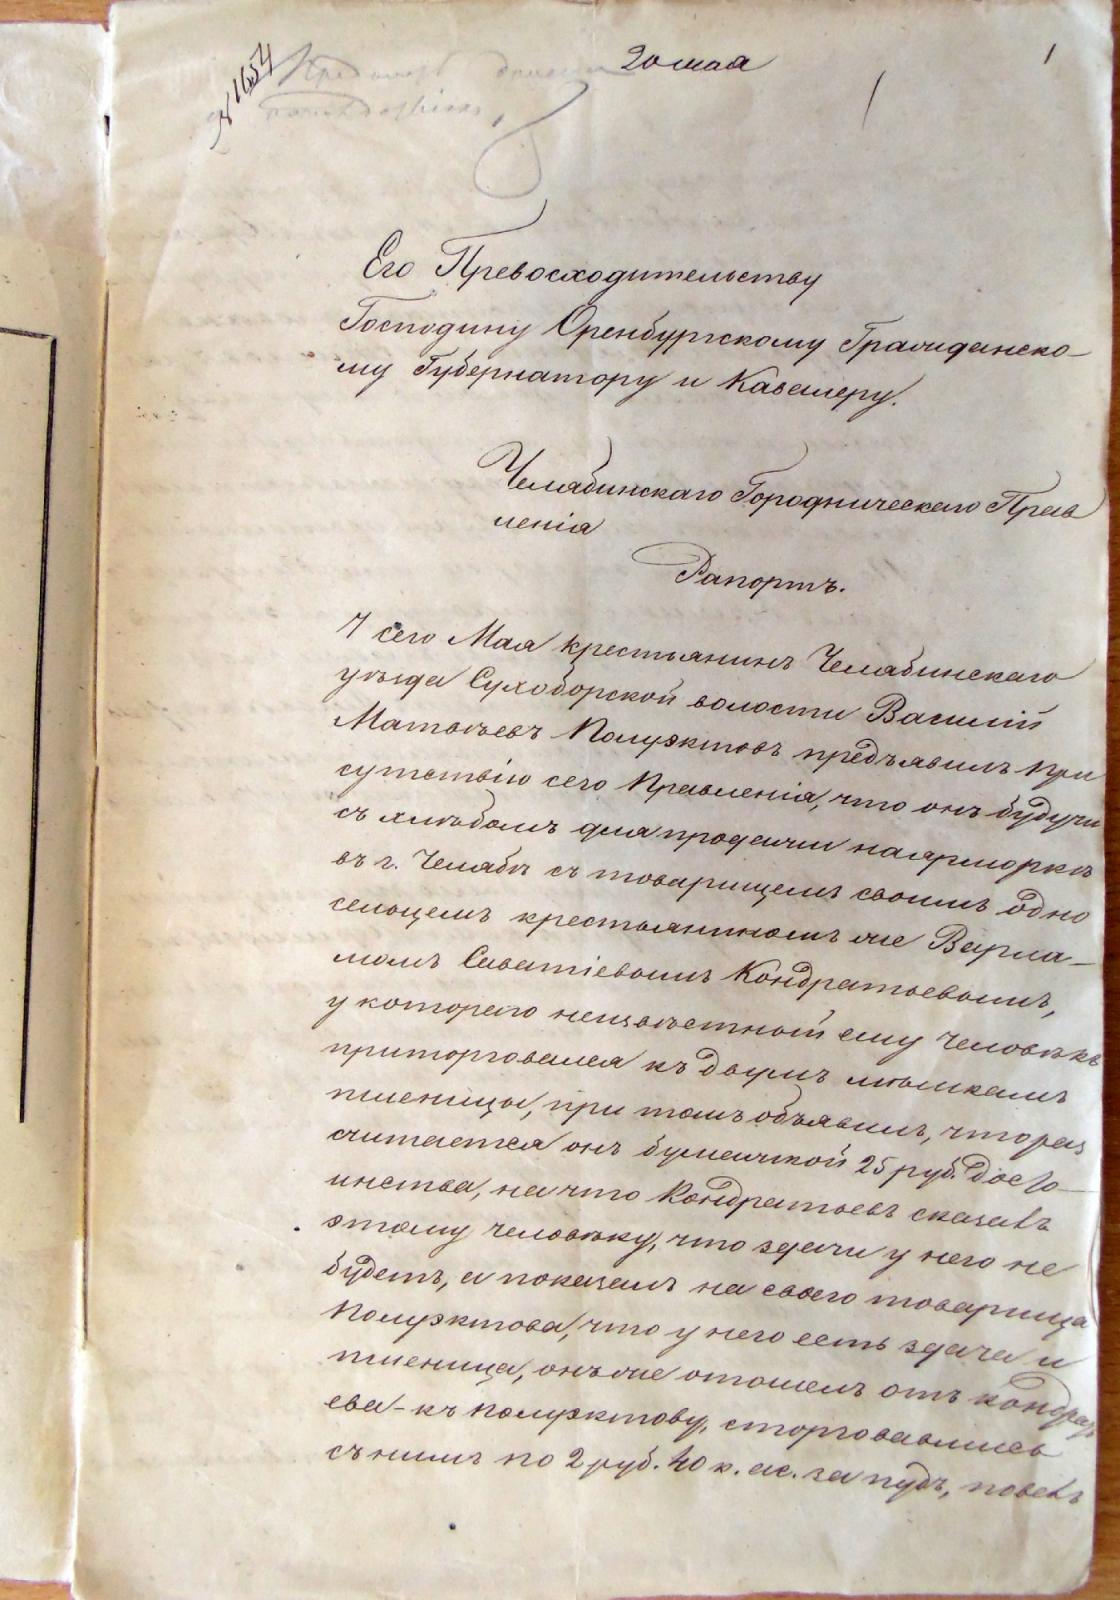 20 мая
1
№ 1654
Его Превосходительству
Господину Оренбургскому Гражданско-
му Губернатору и Кавалеру.
Челябинскаго Городническаго Прав
ленія
Рапортъ.
7 сего Мая крестьянинъ Челябинскаго
уѣзда Сухоборской волости Василій
Матвѣевъ Полуэктовъ предъявилъ при
сутствію сего Правленія, что онъ будучи
съ хлѣбомъ для продажи на ярморкѣ
въ г. Челябѣ съ товарищемъ своимъ одно
сельцемъ крестьяниномъ же Варла-
момъ Саватіевымъ Кондратьевымъ,
у котораго неизвѣстный ему человѣкъ
приторговался къ двумъ мѣшкамъ
пшеницы, при томъ объявилъ, что раз
считается онъ бумажкой 25 руб. досто-
инства, на что Кондратьевъ сказавъ
этому человѣку, что здачи у него не
будетъ, а показалъ на своего товарища
Полуэктова, что у него есть здача и
пшеница, онъ же отошелъ отъ Кондрать
ева - къ Полуэктову, сторговавшись
съ нимъ по 2 руб. 40 к. ас. за пудъ, повелъ